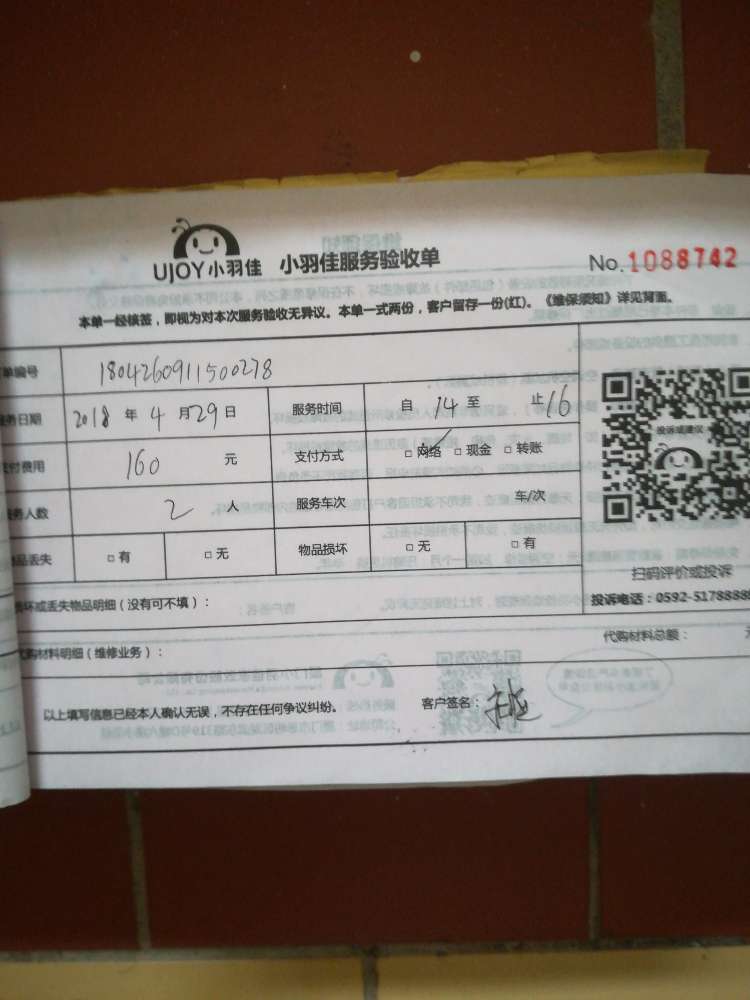 UJOY小羽佳 小羽佳服务验收单 No.1088742
本单一经核签，即视为对本次服务验收无异议。本单一式两份，客户留存一份(红)。《维保须知》详见背面。
单编号 1804260911500278
务日期 2018 年 4 月 29 日 服务时间 自 14 至 止 16
支付费用 160 元 支付方式 □ 网络 □ 现金 □ 转账
务人数 2 人 服务车次 车/次
品丢失 □ 有 □ 无 物品损坏 □ 无 □ 有
投诉或建议
扫码评价或投诉
投诉电话：0592-5178888
损坏或丢失物品明细（没有可不填）：
代购材料总额：
代购材料明细（维修业务）：
以上填写信息已经本人确认无误，不存在任何争议纠纷。 客户签名：